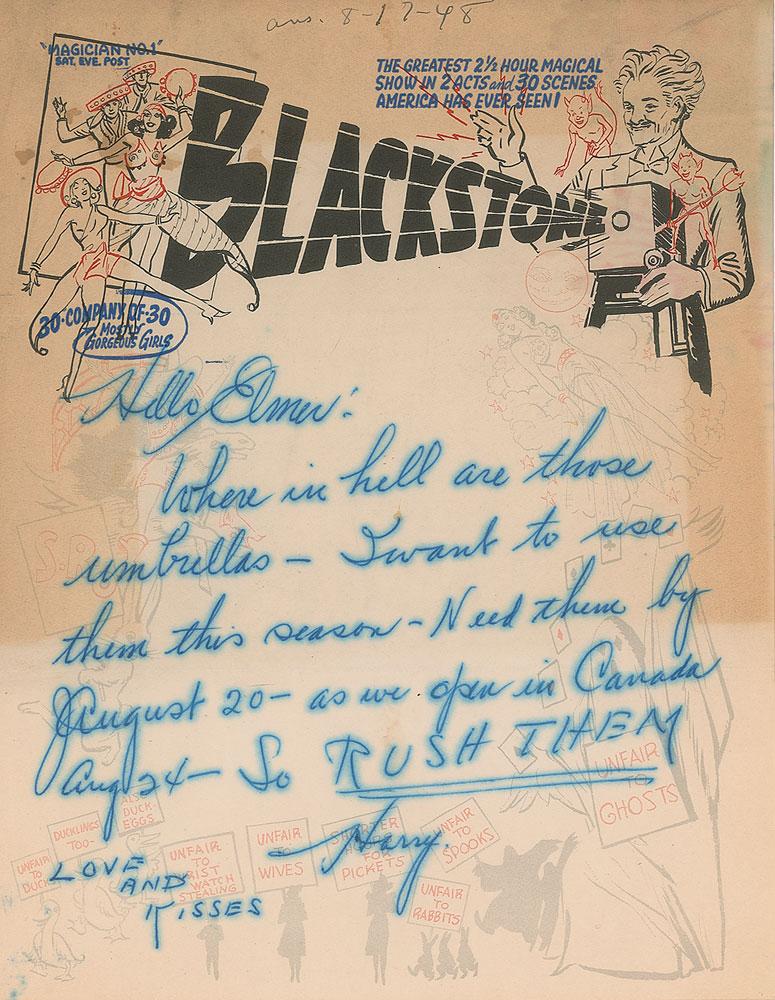 ans. 8-17-48
"MAGICIAN NO.1"
SAT. EVE. POST
THE GREATEST 2½ HOUR MAGICAL
SHOW IN 2 ACTS and 30 SCENES
AMERICA HAS EVER SEEN!
BLACKSTONE
30-COMPANY OF-30
MOSTLY
GORGEOUS GIRLS
Hello Elmer:
Where in hell are those
umbrellas - I want to use
them this season - Need them by
August 20 - as we open in Canada
Aug 24 - So RUSH THEM
Harry.
LOVE
AND
KISSES
UNFAIR
TO
GHOSTS
ALSO
DUCK
EGGS
DUCKLINGS
TOO-
UNFAIR
TO
DUCKS
UNFAIR
TO
WRIST
WATCH
STEALING
UNFAIR
TO
WIVES
SHORTER
FOR
PICKETS
UNFAIR
TO
SPOOKS
UNFAIR
TO
RABBITS